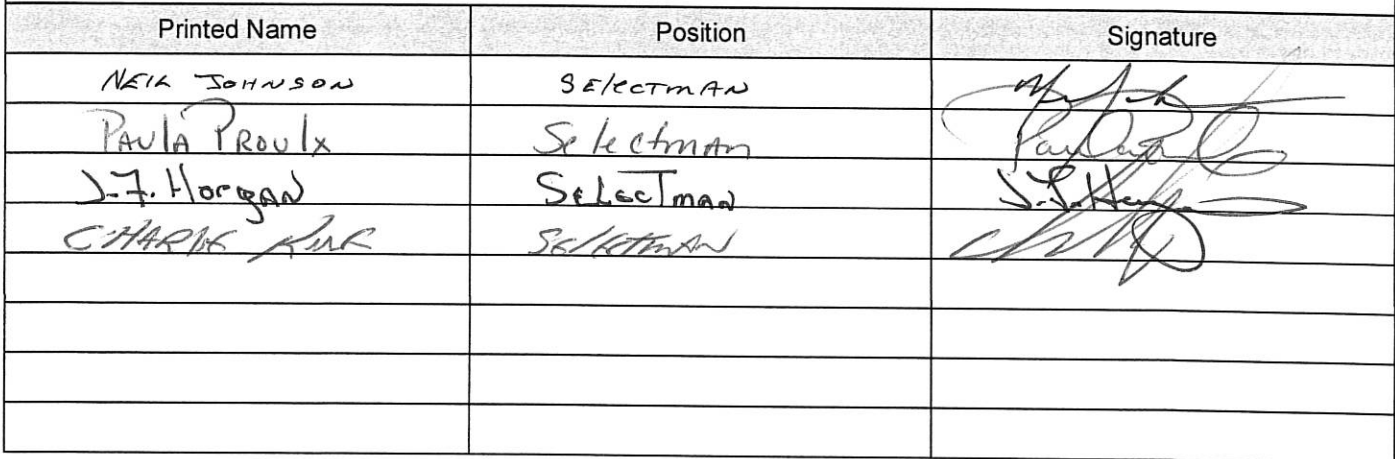 Printed Name Position Signature
NEIL JOHNSON SElECTMAN
PAULA PROULX Selectman
J.F. Horgan SELECTMAN
CHARLIE KING SELECTMAN